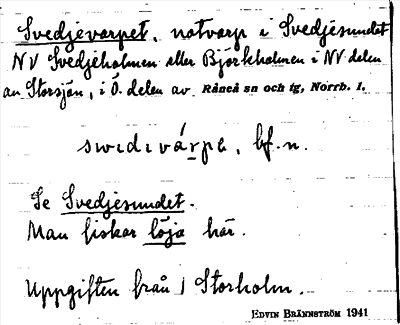 Svedjevarpet, notvarp i Svedjesundet
NV Svedjeholmen eller Björkholmen i NV delen
av Storsjön, i Ö. delen av Råneå sn och tg, Norrb. l.
swıdıvárpə, bf. n.
Se Svedjesundet.
Man fiskar löja här.
Uppgiften från J Storholm.
EDVIN BRÄNNSTRÖM 1941